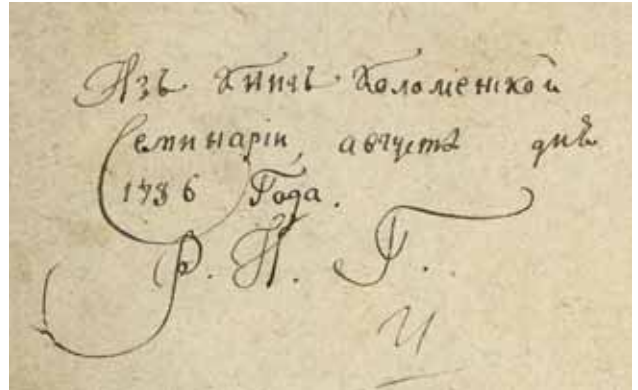 Изъ Книгъ Коломенской
Семинаріи, августа дня
1786 Года.
Р. П. Г.
И